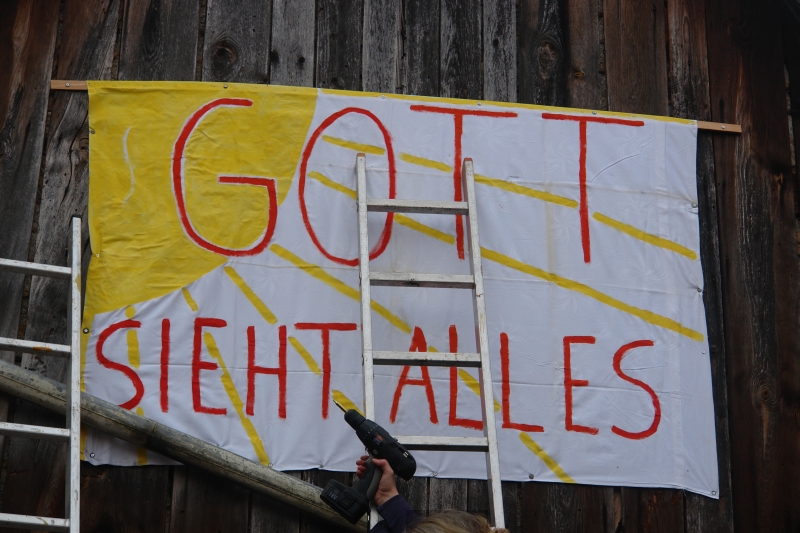 GOTT
SIEHT ALLES